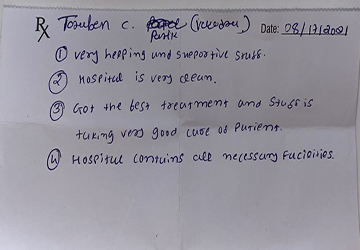 ℞ Toruben C. Parik Date: 08/17/2021
① very helping and supportive stuff.
② Hospital is very clean.
③ Got the best treatment and stuff is
taking very good care of Patient.
④ Hospital contains all necessary facilities.